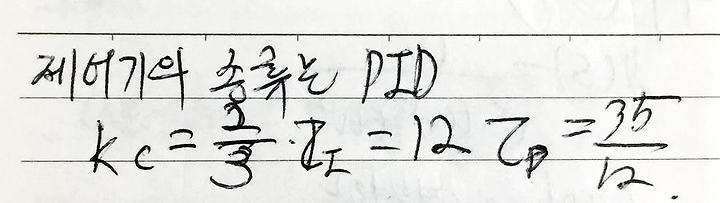 제어기의 종류는 PID
Kc = 2/3 . τ_I = 12 τ_D = 35/12 .